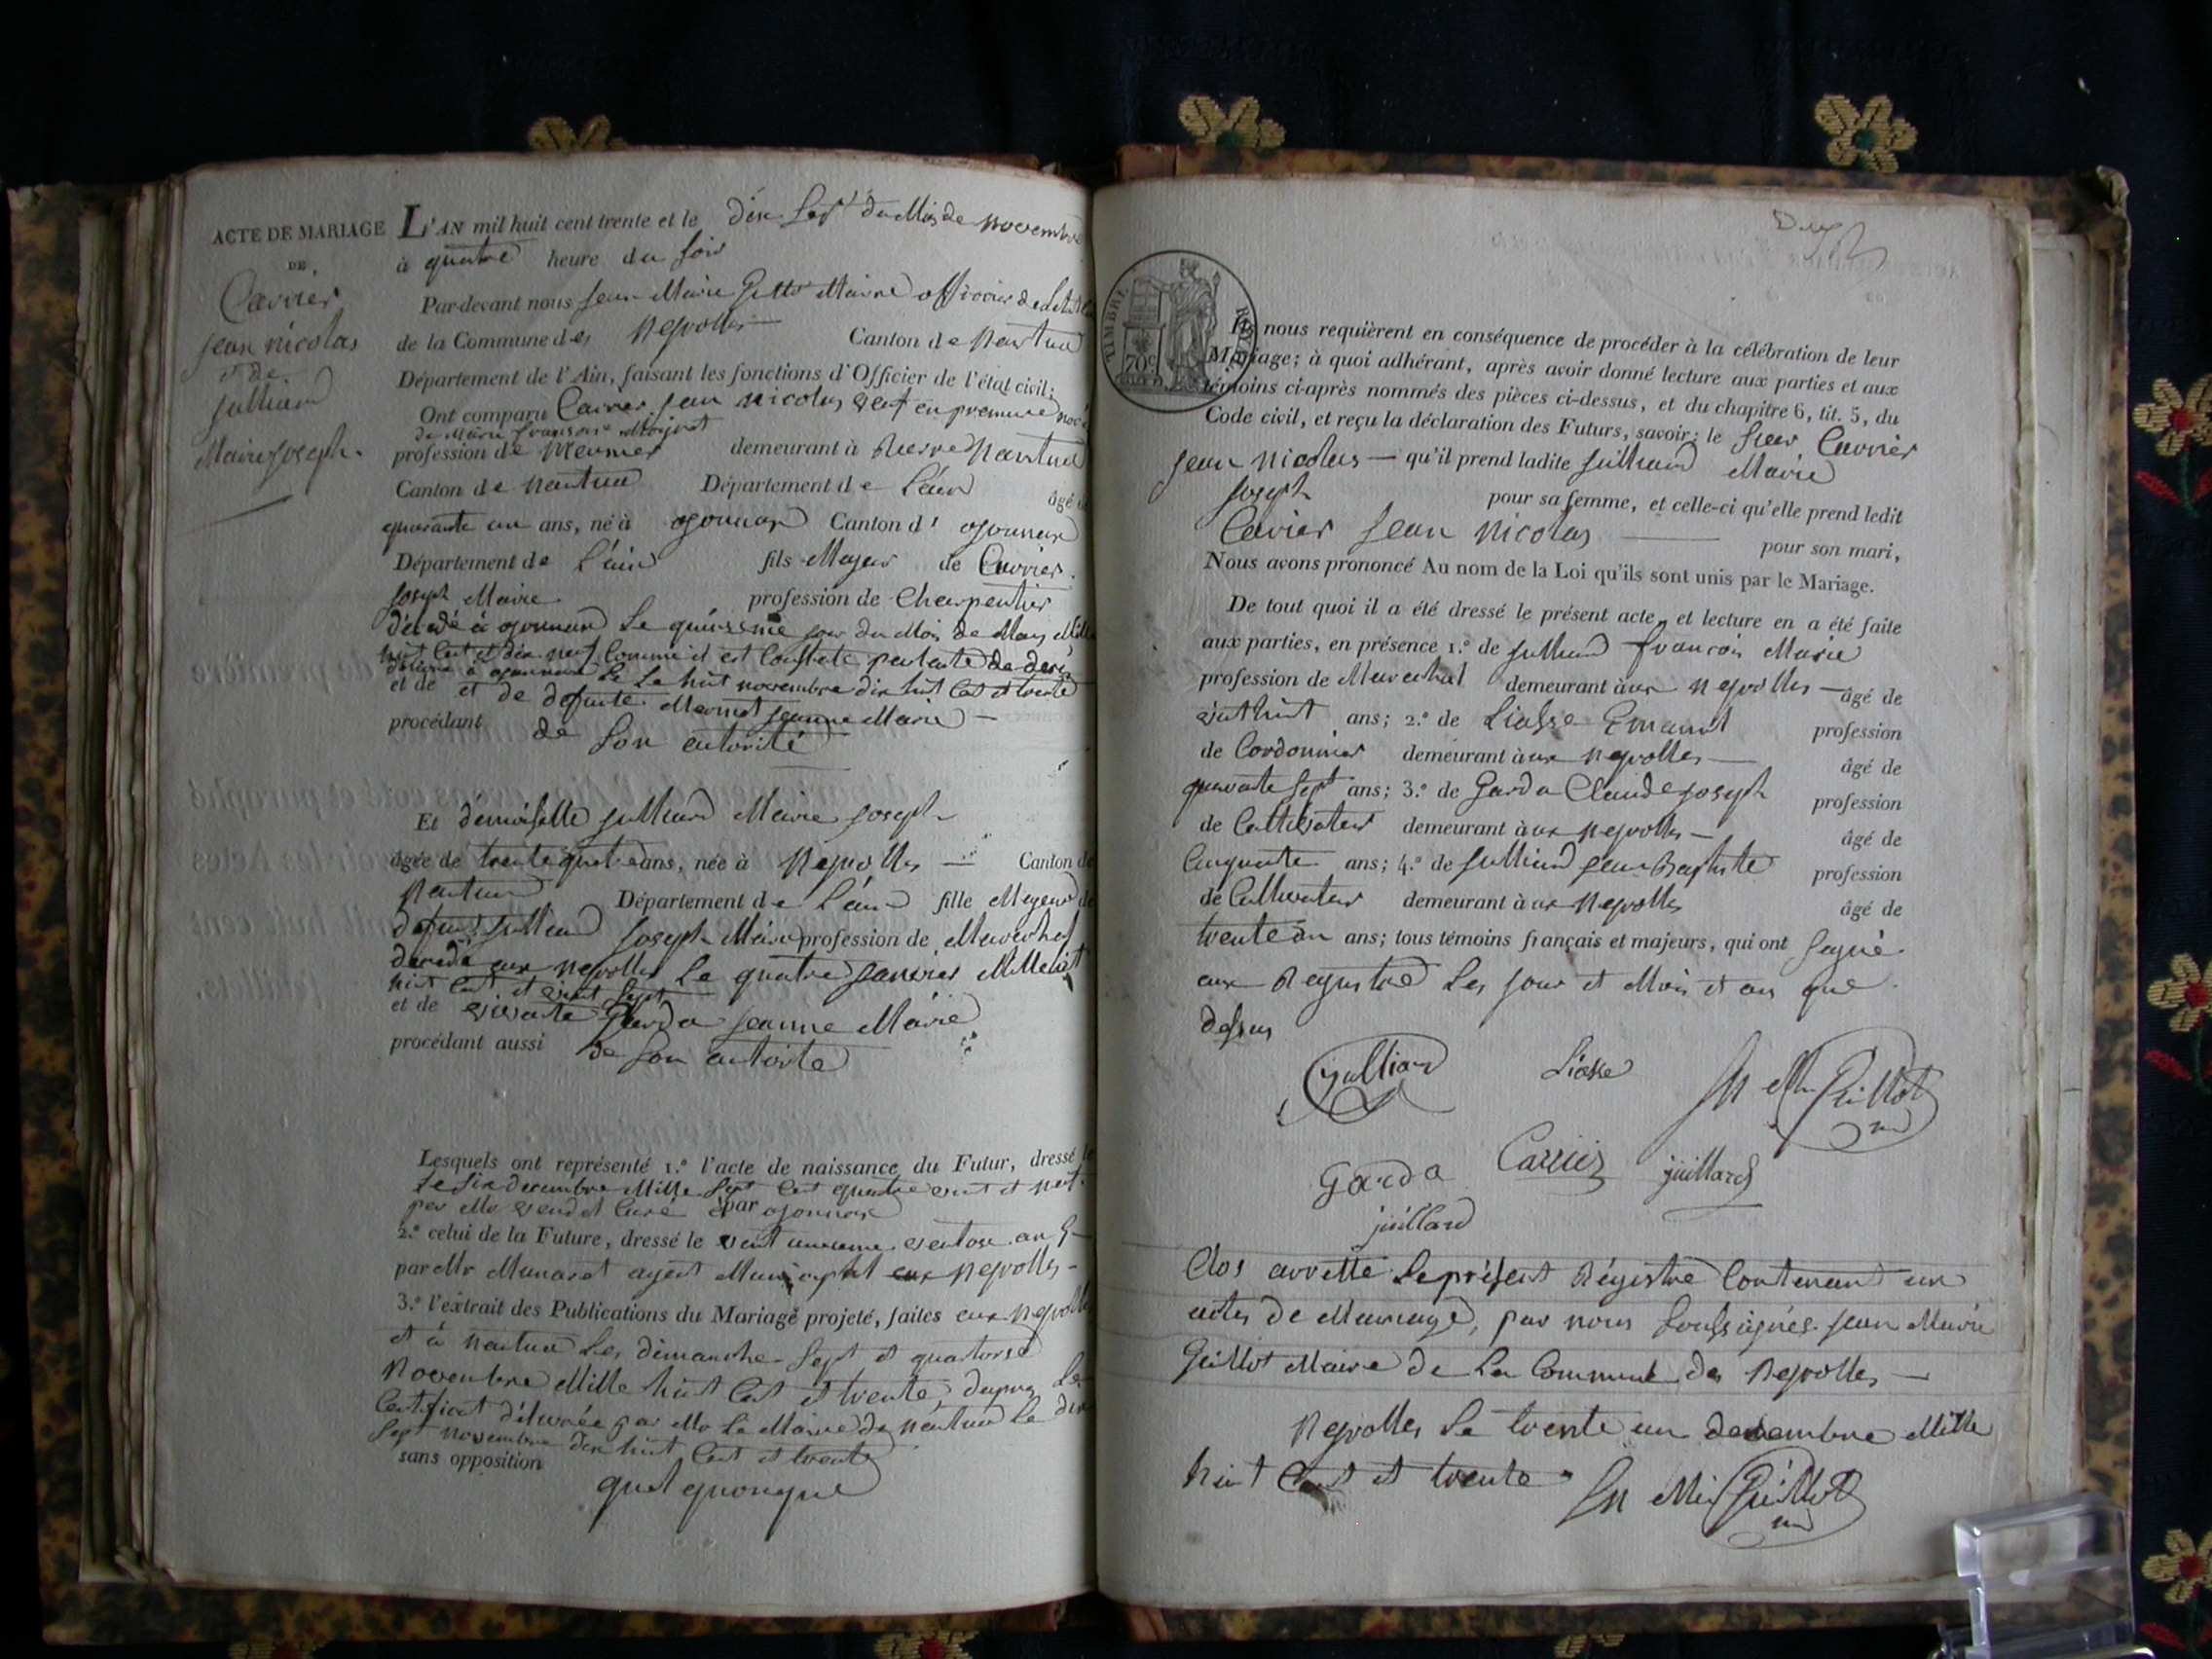 ACTE DE MARIAGE
DE
Carrier
jean nicolas
et de
julliard
Marie joseph.
L'AN mil huit cent trente et le dix Sept du Mois de novembre
à quatre heure du Soir
Par-devant nous jean Marie Maire officier de
de la Commune des neyrolles Canton de nantua
Département de l'Ain, faisant les fonctions d'Officier de l'état civil;
Ont comparu Carrier jean nicolas veuf en premiere
de Marie françoise
profession de Meunier demeurant à nantua
Canton de nantua Département de L'ain âgé de
quarante un ans, né à oyonnax Canton d' oyonnax
Département de L'ain fils Majeur de Carrier
joseph Marie profession de Charpentier
décédé à oyonnax Le quinsieme jour du Mois de Mars Mille
huit Cent et dix neuf Comme il est Constaté
à oyonnax Le huit novembre dix huit Cent et trente
et de et de defunte Mermet jeanne Marie
procédant de Son autorité
Et démoiselle julliard Marie joseph
âgée de trente quatre ans, née à Neyrolles Canton de
Nantua Département de L'ain fille Majeur de
defunt julliard joseph Marie profession de Marechal
décédé aux neyrolles Le quatre janvier Mille
huit Cent et vient Sept
et de vivante Garda jeanne Marie
procédant aussi de Son autorite
Lesquels ont représenté 1.° l'acte de naissance du Futur, dressé le
Le Six decembre Mille Sept Cent quatre vient et neuf
par Mr Curé par oyonnax
2.° celui de la Future, dressé le vient unieme ventose an 5
par Mr Munaret agent Municipal aux neyrolles
3.° l'extrait des Publications du Mariage projeté, faites aux neyrolles
et à nantua Les dimanche Sept et quatorse
Novembre Mille huit Cent et trente, Le
Certificat délivrée par Mr Le Maire de nantua Le dix
Sept novembre dix huit Cent et trente
sans opposition
quel quonque
TIMBRE ROYAL
70c
Ils nous requièrent en conséquence de procéder à la célébration de leur
Mariage; à quoi adhérant, après avoir donné lecture aux parties et aux
témoins ci-après nommés des pièces ci-dessus, et du chapitre 6, tit. 5, du
Code civil, et reçu la déclaration des Futurs, savoir: le Sieur Carrier
jean nicolas — qu'il prend ladite julliard Marie
joseph pour sa femme, et celle-ci qu'elle prend ledit
Carrier jean nicolas pour son mari,
Nous avons prononcé Au nom de la Loi qu'ils sont unis par le Mariage.
De tout quoi il a été dressé le présent acte, et lecture en a été faite
aux parties, en présence 1.° de julliard françois Marie
profession de Marechal demeurant àux neyrolles — âgé de
vient huit ans; 2.° de Liasse Emanuel profession
de Cordonnier demeurant àux neyrolles — âgé de
quarante Sept ans; 3.° de Garda Claude joseph profession
de Cultivateur demeurant àux neyrolles — âgé de
Cinquante ans; 4.° de julliard jean Baptiste profession
de Cultivateur demeurant àux neyrolles âgé de
trente un ans; tous témoins français et majeurs, qui ont Signé
aux Registre Les jour et Mois et an que
dessus
julliard Liasse jn Mie Guillot
Garda Carrier juillard
juillard
Clos arretté Le présent Régistre Contenant un
actes de Mariage, par nous Soussignés jean Marie
Guillot Maire de La Commune des Neyrolles —
Neyrolles Le trente un decembre Mille
huit Cent et trente jn Mie Guillot